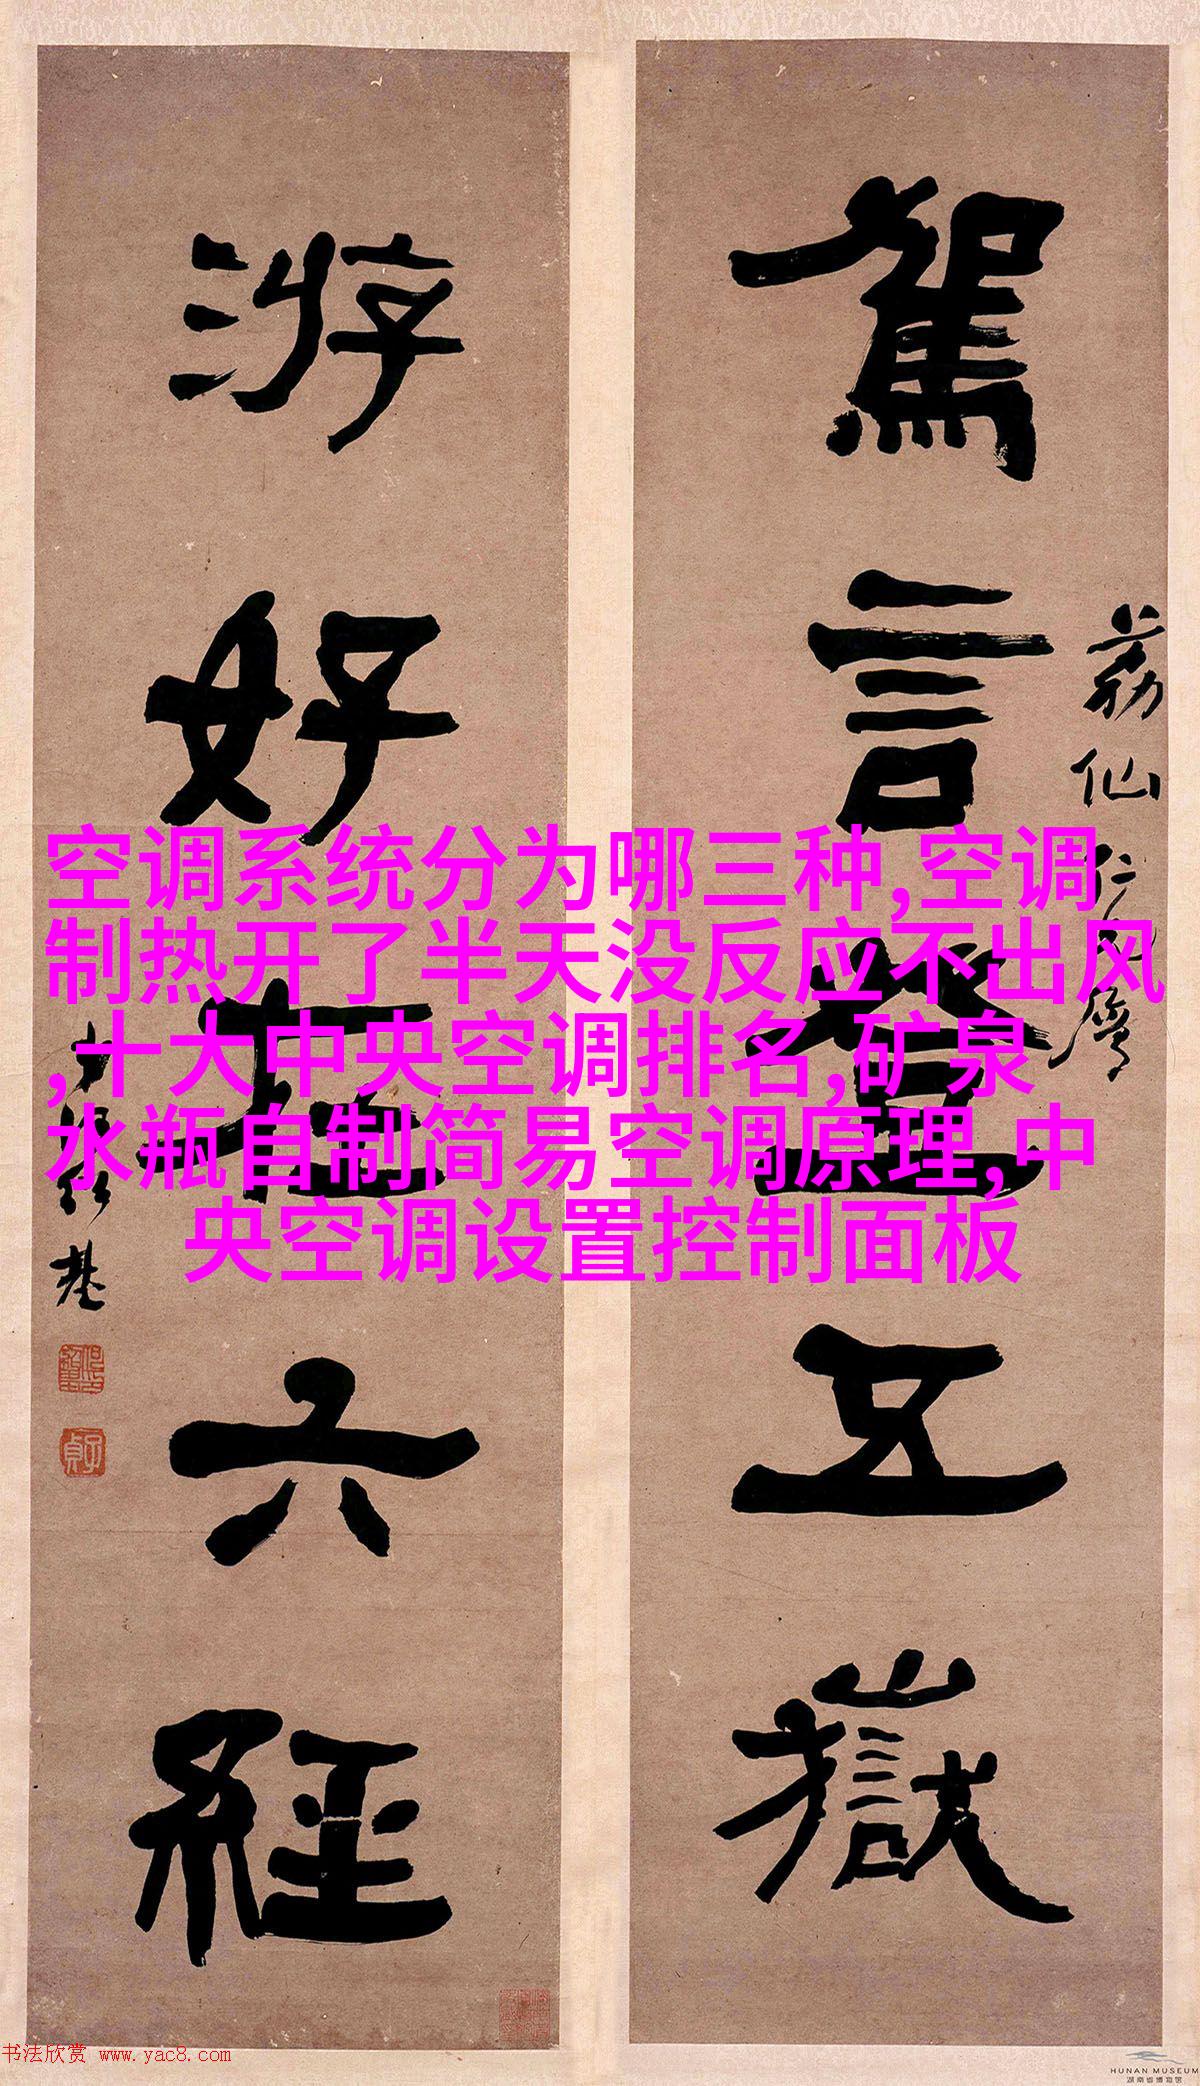 駕言登五嶽
荔仙仁兄属
游好在六經
何紹基
子貞
空调系统分为哪三种,空调
制热开了半天没反应不出风
,十大中央空调排名,矿泉
水瓶自制简易空调原理,中
央空调设置控制面板
书法欣赏 www.yac8.com
HUNAN MUSEUM
湖南省博物馆